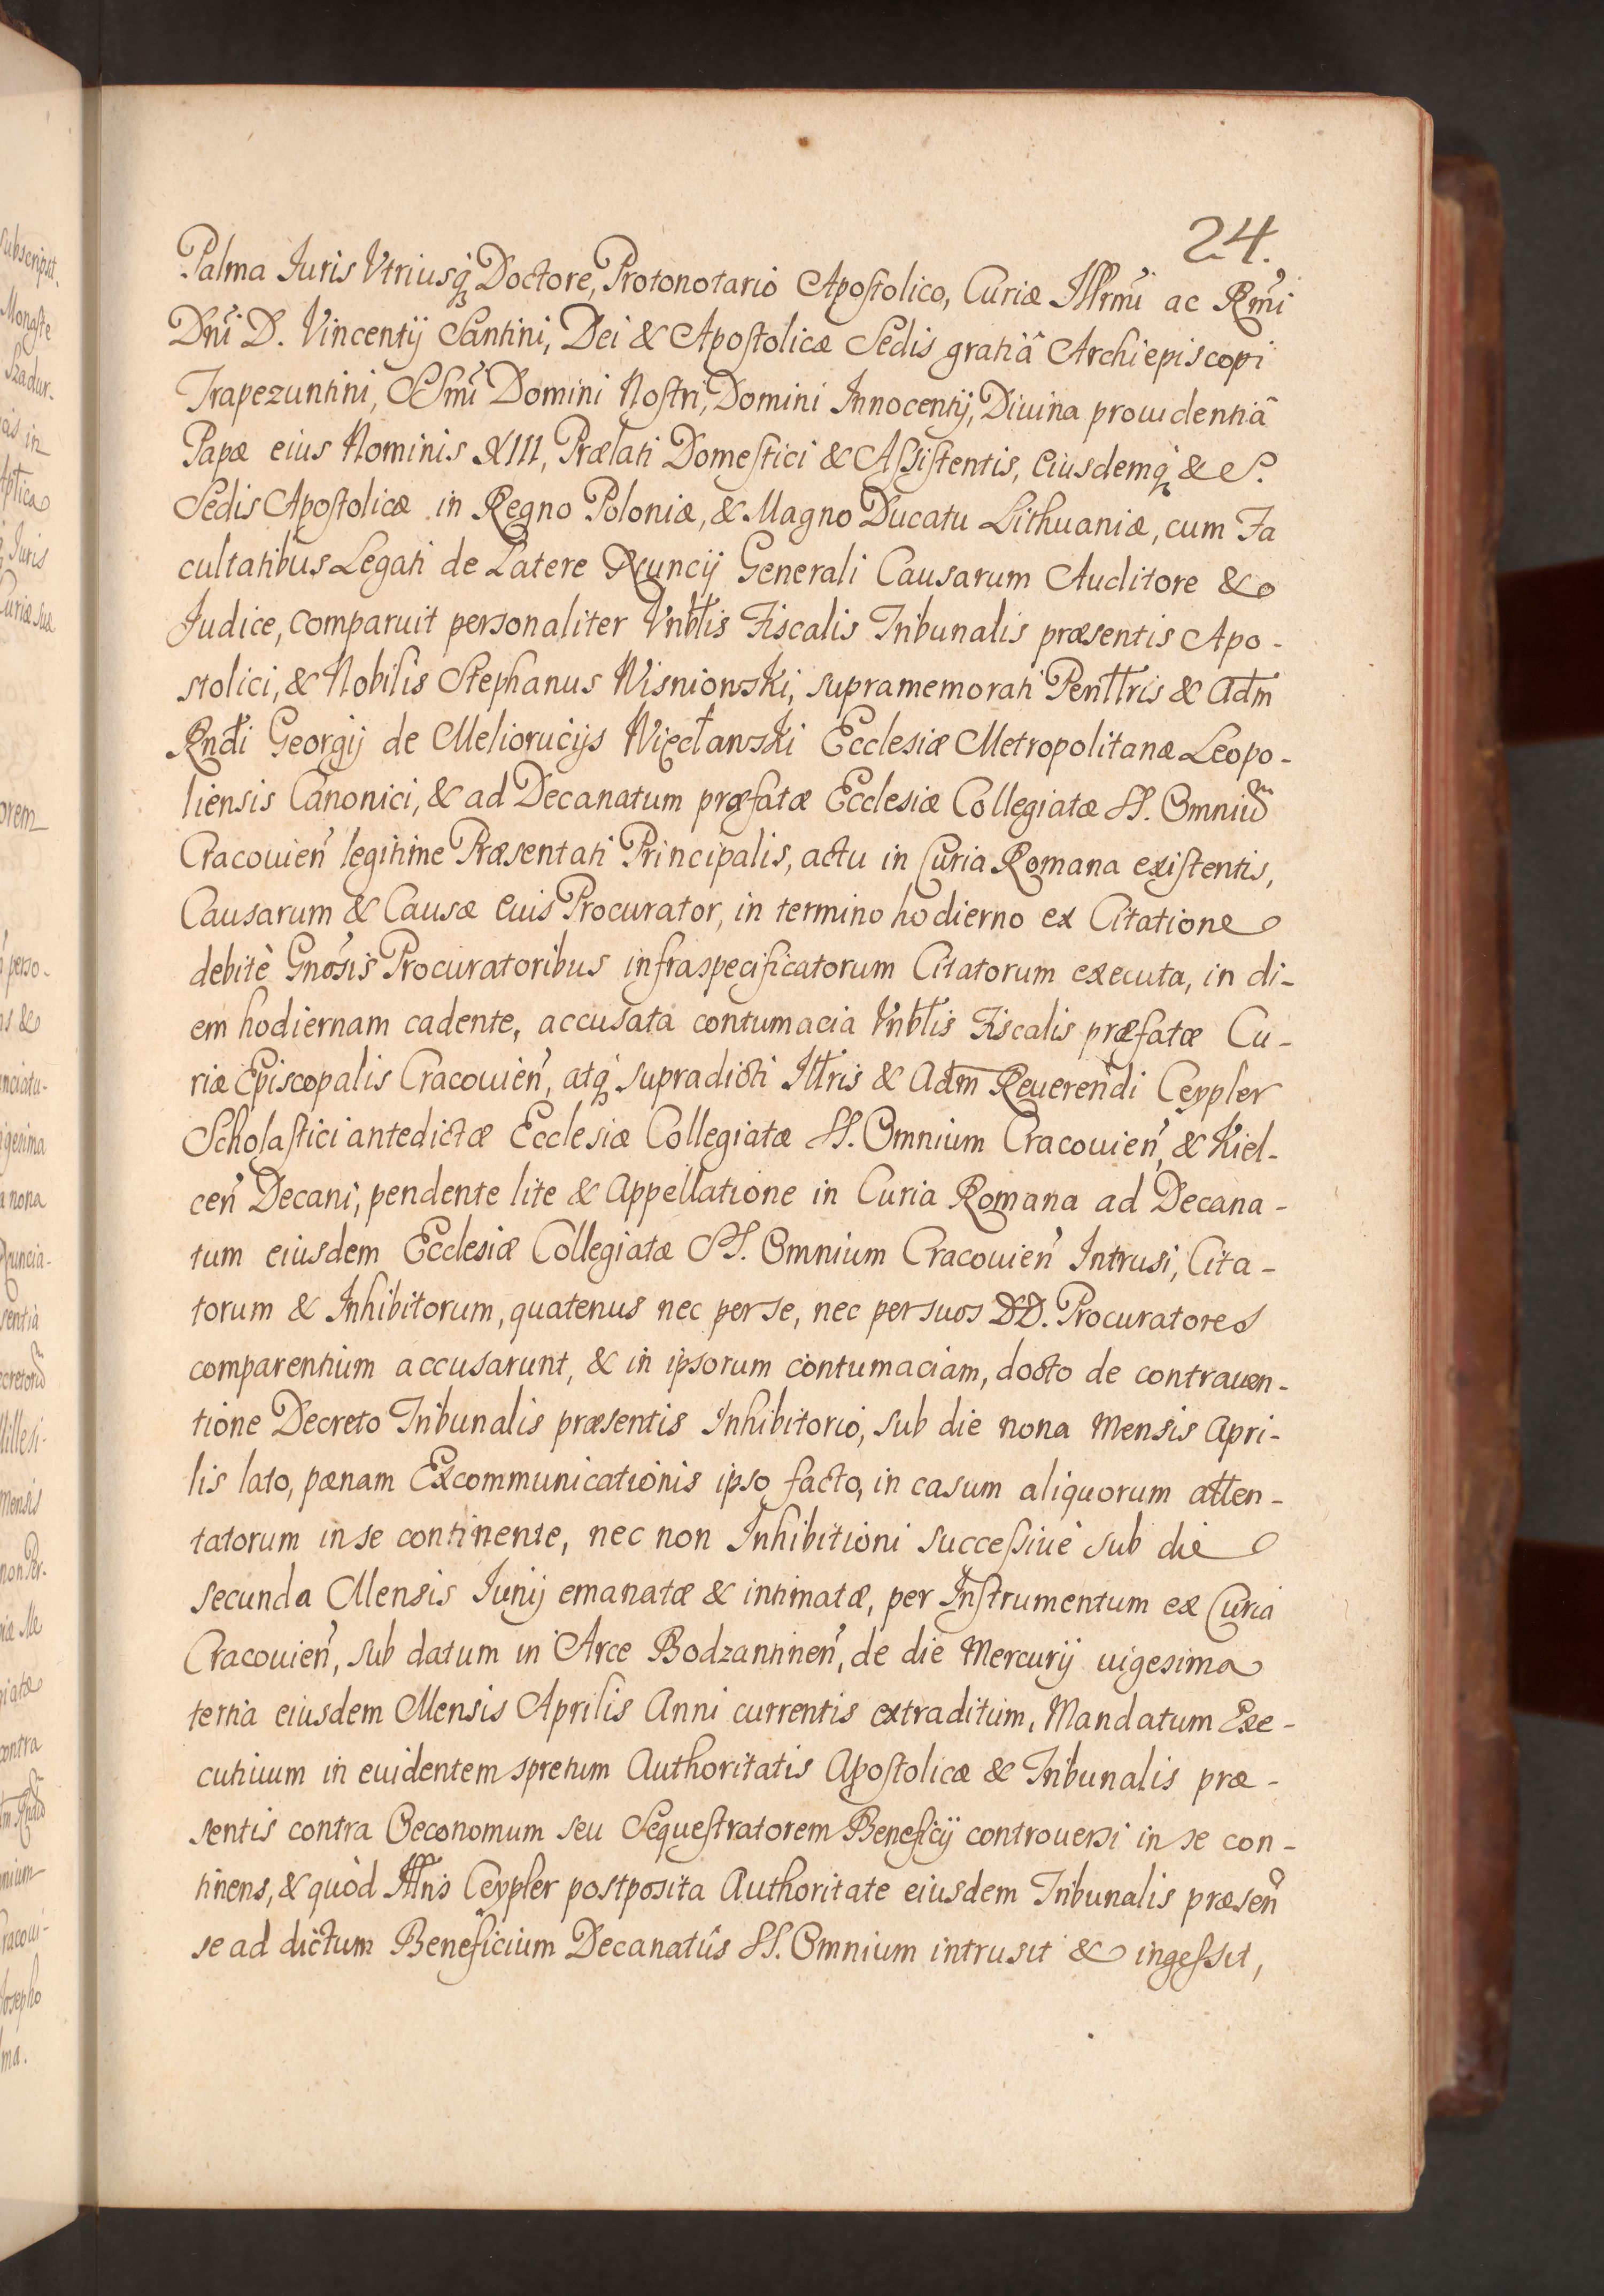 24.
Palma Iuris Vtriusq₃ Doctore, Protonotario Apostolico, Curiæ Illrmi ac Rmi
Dni D. Vincentij Santini, Dei & Apostolicæ Sedis gratiâ Archiepiscopi
Trapezuntini, SSmi Domini Nostri, Domini Innocentij, Diuina prouidentiâ
Papæ eius Nominis XIII, Prælati Domestici & Assistentis, Eiusdemq₃ & S.
Sedis Apostolicæ in Regno Poloniæ, & Magno Ducatu Lithuaniæ, cum Fa
cultatibus Legati de Latere Nuncij Generali Causarum Auditore &
Judice, comparuit personaliter Vnbłis Fiscalis Tribunalis præsentis Apo-
stolici, & Nobilis Stephanus Wisniowski, supramemorati Penłłris & Adm
Rndi Georgij de Meliorucijs Więcławski Ecclesiæ Metropolitanæ Leopo-
liensis Canonici, & ad Decanatum præfatæ Ecclesiæ Collegiatæ SS. Omniũ
Cracouień legitime Præsentati Principalis, actu in Curia Romana existentis,
Causarum & Causæ euis Procurator, in termino hodierno ex Citatione
debitè Gnosis Procuratoribus infraspecificatorum Citatorum executa, in di-
em hodiernam cadente, accusata contumacia Vnbłis Fiscalis præfatæ Cu-
riæ Episcopalis Cracouień, atq₃ supradicti Iłłris & Adm Reuerendi Ceypler
Scholastici antedictæ Ecclesiæ Collegiatæ SS. Omnium Cracouień, & Kiel-
ceń Decani, pendente lite & Appellatione in Curia Romana ad Decana-
tum eiusdem Ecclesiæ Collegiatæ SS. Omnium Cracouień Intrusi, Cita-
torum & Inhibitorum, quatenus nec per se, nec per suos DD. Procuratores
comparentium accusarunt, & in ipsorum contumaciam, docto de contrauen-
tione Decreto Tribunalis præsentis Inhibitorio, sub die nona Mensis Apri-
lis lato, pænam Excommunicationis ipso facto, in casum aliquorum atten-
tatorum in se continente, nec non Inhibitioni successiuè sub die
secunda Mensis Iunij emanatæ & intimatæ, per Instrumentum ex Curia
Cracouień, sub datum in Arce Bodzantineń, de die Mercurij uigesima
tertia eiusdem Mensis Aprilis Anni currentis extraditum, Mandatum Exe-
cutiuum in euidentem spretum Authoritatis Apostolicæ & Tribunalis præ-
sentis contra Oeconomum seu Sequestratorem Beneficij controuersi in se con-
tinens, & quòd Ceypler postposita Authoritate eiusdem Tribunalis præseń
se ad dictum Beneficium Decanatûs SS. Omnium intrusit & ingessit,